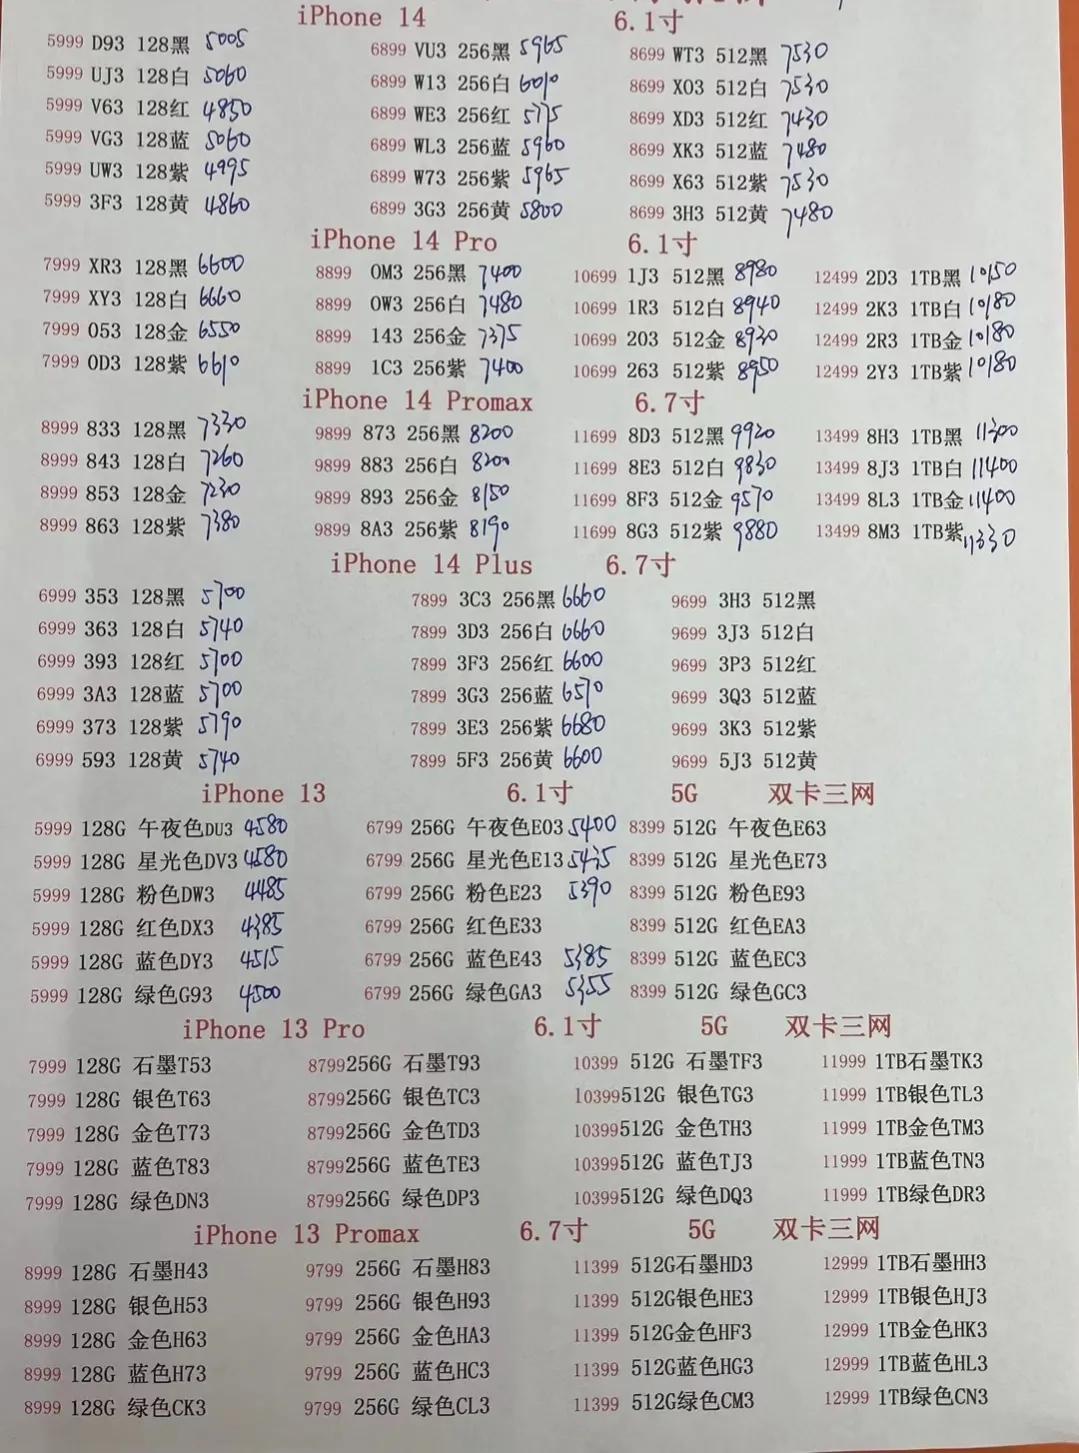 iPhone 14 6.1寸
5999 D93 128黑 5005 6899 VU3 256黑 5965 8699 WT3 512黑 7530
5999 UJ3 128白 5060 6899 W13 256白 6010 8699 XO3 512白 7530
5999 V63 128红 4850 6899 WE3 256红 5775 8699 XD3 512红 7430
5999 VG3 128蓝 5060 6899 WL3 256蓝 5960 8699 XK3 512蓝 7480
5999 UW3 128紫 4995 6899 W73 256紫 5965 8699 X63 512紫 7530
5999 3F3 128黄 4860 6899 3G3 256黄 5800 8699 3H3 512黄 7480
iPhone 14 Pro 6.1寸
7999 XR3 128黑 6600 8899 0M3 256黑 7400 10699 1J3 512黑 8980 12499 2D3 1TB黑 10150
7999 XY3 128白 6660 8899 0W3 256白 7480 10699 1R3 512白 8940 12499 2K3 1TB白 10180
7999 053 128金 6550 8899 143 256金 7375 10699 203 512金 8930 12499 2R3 1TB金 10180
7999 0D3 128紫 6610 8899 1C3 256紫 7400 10699 263 512紫 8950 12499 2Y3 1TB紫 10180
iPhone 14 Promax 6.7寸
8999 833 128黑 7330 9899 873 256黑 8200 11699 8D3 512黑 9920 13499 8H3 1TB黑 11300
8999 843 128白 7260 9899 883 256白 8200 11699 8E3 512白 9830 13499 8J3 1TB白 11400
8999 853 128金 7230 9899 893 256金 8150 11699 8F3 512金 9570 13499 8L3 1TB金 11400
8999 863 128紫 7380 9899 8A3 256紫 8190 11699 8G3 512紫 9880 13499 8M3 1TB紫 11330
iPhone 14 Plus 6.7寸
6999 353 128黑 5700 7899 3C3 256黑 6660 9699 3H3 512黑
6999 363 128白 5740 7899 3D3 256白 6660 9699 3J3 512白
6999 393 128红 5700 7899 3F3 256红 6600 9699 3P3 512红
6999 3A3 128蓝 5700 7899 3G3 256蓝 6570 9699 3Q3 512蓝
6999 373 128紫 5790 7899 3E3 256紫 6680 9699 3K3 512紫
6999 593 128黄 5740 7899 5F3 256黄 6600 9699 5J3 512黄
iPhone 13 6.1寸 5G 双卡三网
5999 128G 午夜色DU3 4580 6799 256G 午夜色E03 5400 8399 512G 午夜色E63
5999 128G 星光色DV3 4580 6799 256G 星光色E13 5475 8399 512G 星光色E73
5999 128G 粉色DW3 4485 6799 256G 粉色E23 5390 8399 512G 粉色E93
5999 128G 红色DX3 4385 6799 256G 红色E33 8399 512G 红色EA3
5999 128G 蓝色DY3 4515 6799 256G 蓝色E43 5385 8399 512G 蓝色EC3
5999 128G 绿色G93 4500 6799 256G 绿色GA3 5355 8399 512G 绿色GC3
iPhone 13 Pro 6.1寸 5G 双卡三网
7999 128G 石墨T53 8799256G 石墨T93 10399 512G 石墨TF3 11999 1TB石墨TK3
7999 128G 银色T63 8799256G 银色TC3 10399512G 银色TG3 11999 1TB银色TL3
7999 128G 金色T73 8799256G 金色TD3 10399512G 金色TH3 11999 1TB金色TM3
7999 128G 蓝色T83 8799256G 蓝色TE3 10399512G 蓝色TJ3 11999 1TB蓝色TN3
7999 128G 绿色DN3 8799256G 绿色DP3 10399512G 绿色DQ3 11999 1TB绿色DR3
iPhone 13 Promax 6.7寸 5G 双卡三网
8999 128G 石墨H43 9799 256G 石墨H83 11399 512G石墨HD3 12999 1TB石墨HH3
8999 128G 银色H53 9799 256G 银色H93 11399 512G银色HE3 12999 1TB银色HJ3
8999 128G 金色H63 9799 256G 金色HA3 11399 512G金色HF3 12999 1TB金色HK3
8999 128G 蓝色H73 9799 256G 蓝色HC3 11399 512G蓝色HG3 12999 1TB蓝色HL3
8999 128G 绿色CK3 9799 256G 绿色CL3 11399 512G绿色CM3 12999 1TB绿色CN3